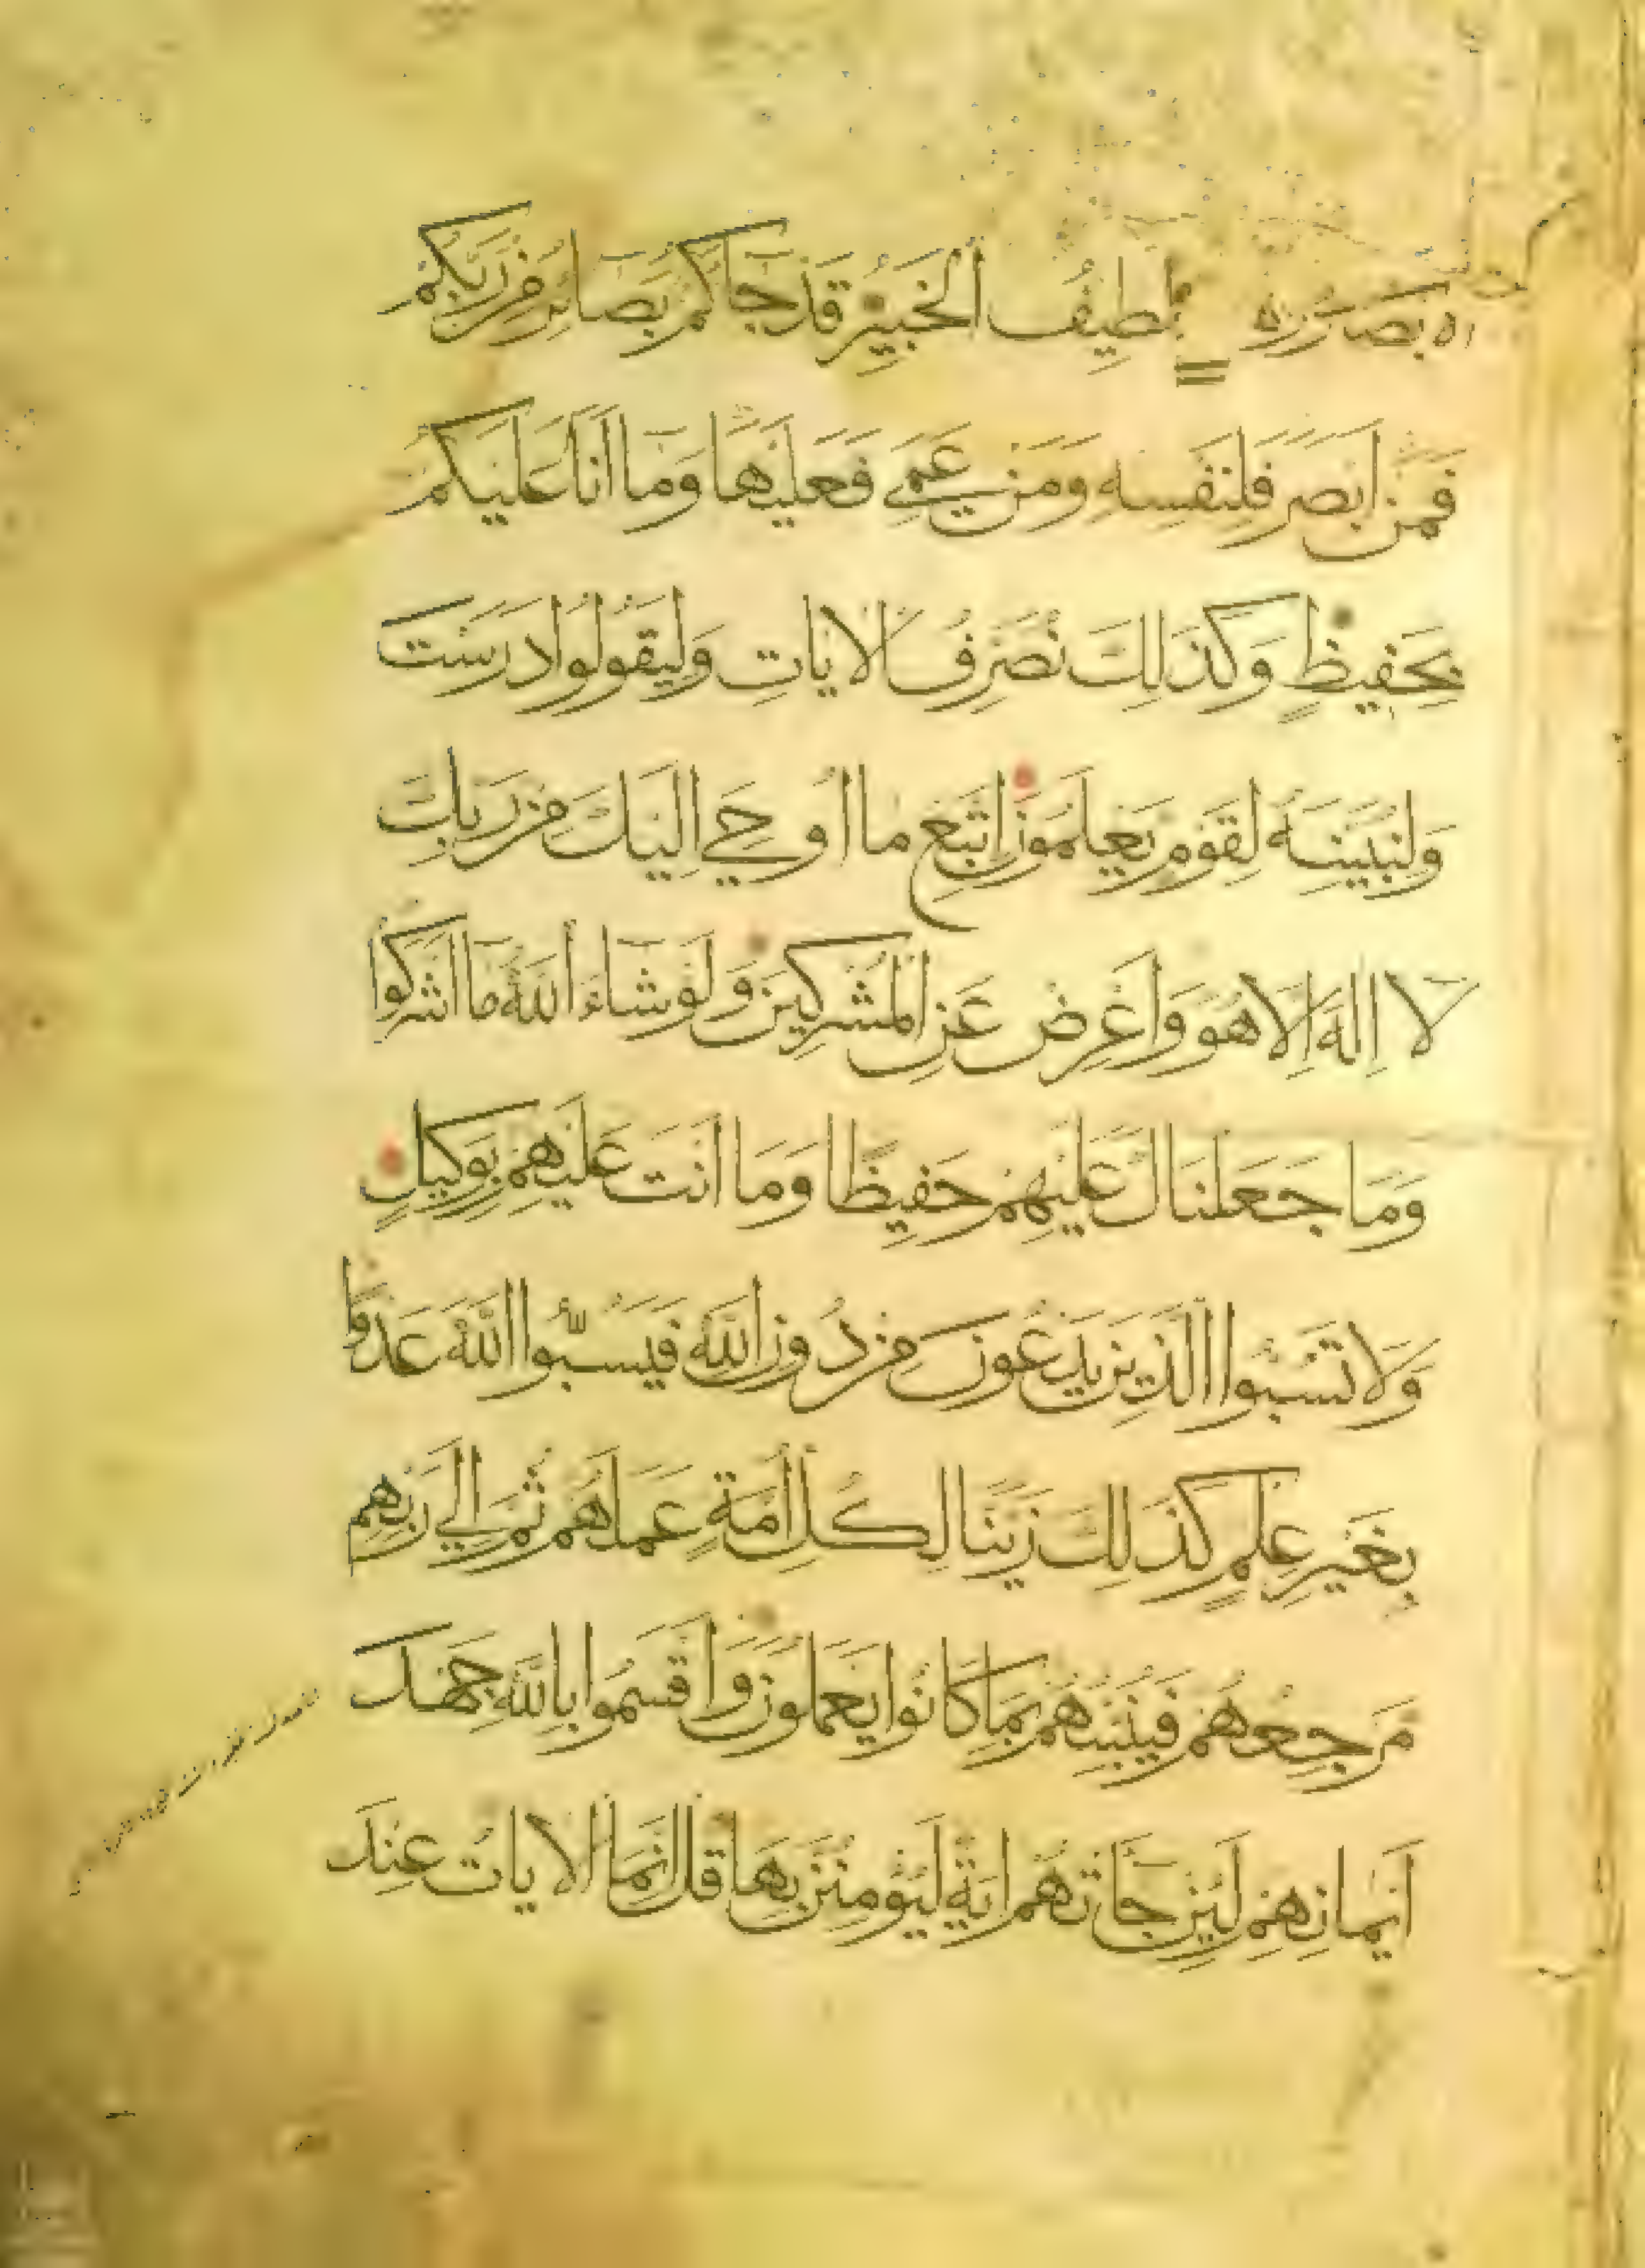 الابصار وهو اللطيف الخبير قد جاكم بصائر من ربكم
فمن ابصر فلنفسه ومن عمي فعليها وما انا عليكم
بحفيظ وكذلك نصرف الايات وليقولوا درست
ولنبينه لقوم يعلمون اتبع ما اوحي اليك من ربك
لا اله الا هو واعرض عن المشركين ولو شاء الله ما اشركوا
وما جعلناك عليهم حفيظا وما انت عليهم بوكيل
ولا تسبوا الذين يدعون من دون الله فيسبوا الله عدوا
بغير علم كذلك زينا لكل امة عملهم ثم الي ربهم
مرجعهم فينبئهم بما كانوا يعملون واقسموا بالله جهد
ايمانهم لئن جاتهم اية ليومنن بها قل انما الايات عند